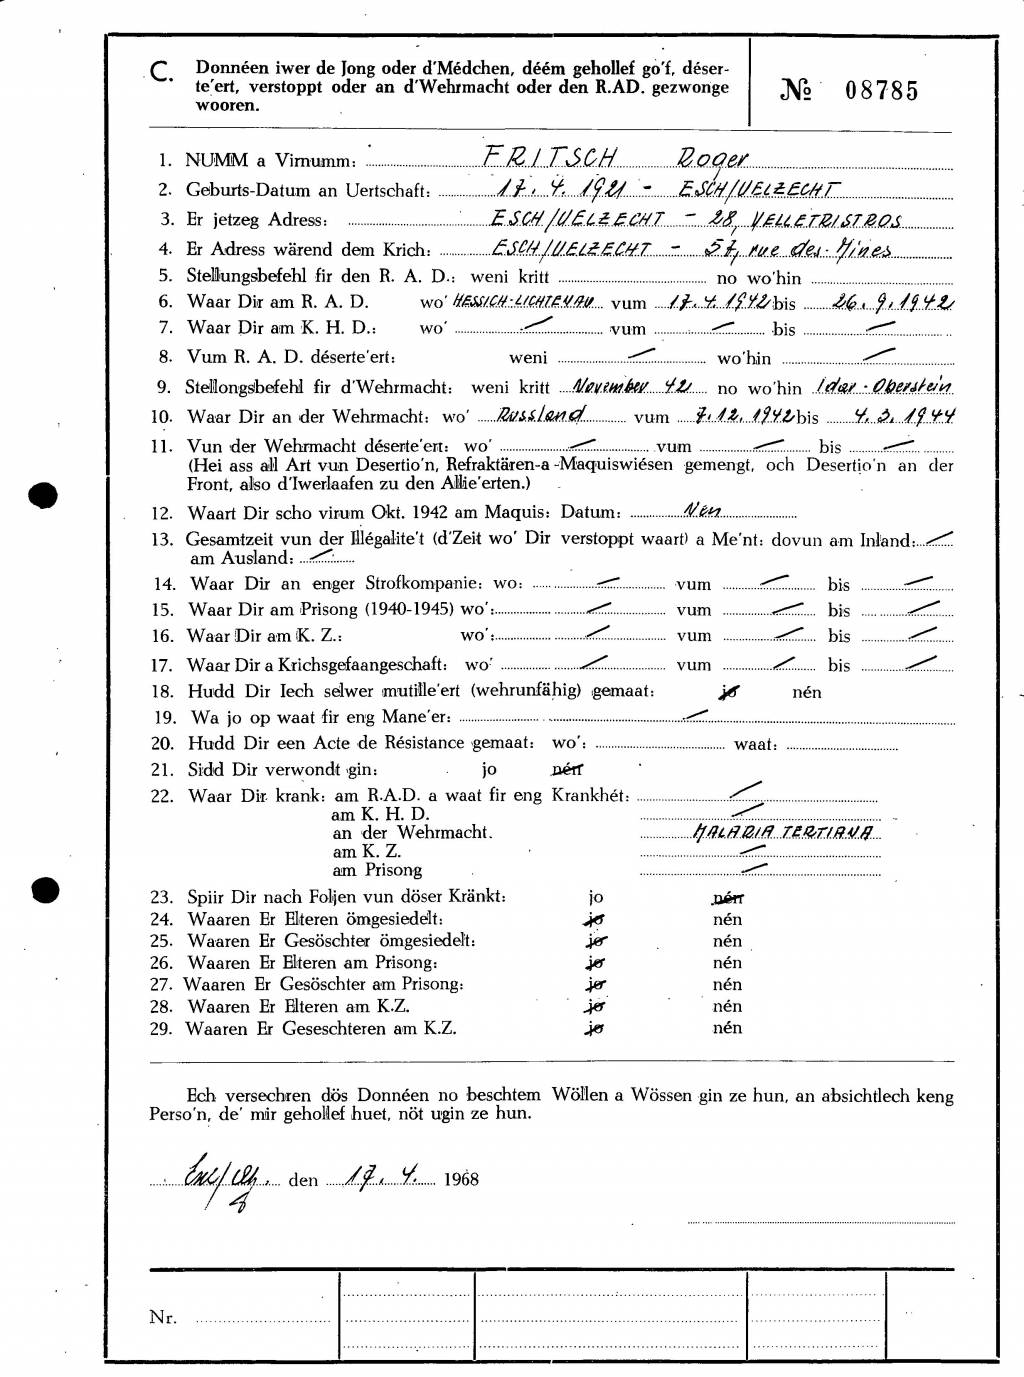 C. Donnéen iwer de Jong oder d'Médchen, déém gehollef go'f, déser-
te'ert, verstoppt oder an d'Wehrmacht oder den R.AD. gezwonge
wooren.
№ 08785
1. NUMM a Virnumm: FRITSCH Roger
2. Geburts-Datum an Uertschaft: 17. 4. 1921 - ESCH/UELZECHT
3. Er jetzeg Adress: ESCH/UELZECHT - 28, VELLETRISTROS
4. Er Adress wärend dem Krich: ESCH/UELZECHT - 57, rue des Mines
5. Stellungsbefehl fir den R. A. D.: weni kritt no wo'hin
6. Waar Dir am R. A. D. wo' HESSICH-LICHTENAU vum 17.4.1942 bis 26.9.1942
7. Waar Dir am K. H. D.: wo' — vum — bis —
8. Vum R. A. D. déserte'ert: weni — wo'hin —
9. Stellongsbefehl fir d'Wehrmacht: weni kritt November 42 no wo'hin Idar-Oberstein
10. Waar Dir an der Wehrmacht: wo' Russland vum 7.12.1942 bis 4.3.1944
11. Vun der Wehrmacht déserte'ert: wo' — vum — bis —
(Hei ass all Art vun Desertio'n, Refraktären-a-Maquiswiésen gemengt, och Desertio'n an der
Front, also d'Iwerlaafen zu den Allie'erten.)
12. Waart Dir scho virum Okt. 1942 am Maquis: Datum: Nén
13. Gesamtzeit vun der Illégalite't (d'Zeit wo' Dir verstoppt waart) a Me'nt: dovun am Inland: —
am Ausland: —
14. Waar Dir an enger Strofkompanie: wo: — vum — bis —
15. Waar Dir am Prisong (1940-1945) wo': — vum — bis —
16. Waar Dir am K. Z.: wo': — vum — bis —
17. Waar Dir a Krichsgefaangeschaft: wo' — vum — bis —
18. Hudd Dir Iech selwer mutille'ert (wehrunfähig) gemaat: jo nén
19. Wa jo op waat fir eng Mane'er: —
20. Hudd Dir een Acte de Résistance gemaat: wo': waat:
21. Sidd Dir verwondt gin: jo nén
22. Waar Dir krank: am R.A.D. a waat fir eng Krankhét: —
am K. H. D. —
an der Wehrmacht. MALARIA TERTIANA
am K. Z. —
am Prisong —
23. Spiir Dir nach Foljen vun döser Kränkt: jo nén
24. Waaren Er Elteren ömgesiedelt: jo nén
25. Waaren Er Gesöschter ömgesiedelt: jo nén
26. Waaren Er Elteren am Prisong: jo nén
27. Waaren Er Gesöschter am Prisong: jo nén
28. Waaren Er Elteren am K.Z. jo nén
29. Waaren Er Geseschteren am K.Z. jo nén
Ech versechren dös Donnéen no beschtem Wöllen a Wössen gin ze hun, an absichtlech keng
Perso'n, de' mir gehollef huet, nöt ugin ze hun.
den 17. 4. 1968
Nr.